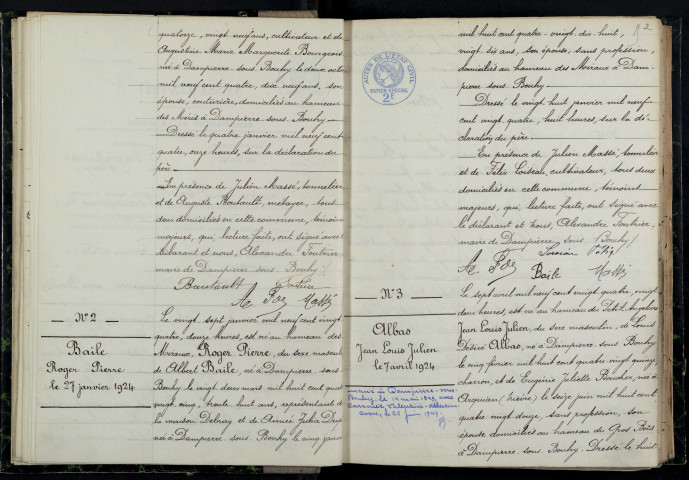 quatorze, vingt neuf ans, cultivateur et de
Augustine Marie Marguerite Bourgeois
née à Dampierre sous Bouhy le deux
mil neuf cent quatre, dix neuf ans, son
épouse, couturière, domiciliés au hameau
des Méris à Dampierre sous Bouhy
Dressé le quatre janvier mil neuf cent
quatre, onze heures, sur la déclaration du
père
En présence de Julien Massé, tonnelier
et de Auguste métayer, tous
deux domiciliés en cette commune, témoins
majeurs, qui, lecture faite, ont signé avec
déclarant et nous, Alexandre
maire de Dampierre sous Bouhy
N° 2
Baile
Roger Pierre
le 27 janvier 1924
Le vingt sept janvier mil neuf cent vingt
quatre, deux heures, est né au hameau des
Roger Pierre, du sexe masculin
de Albert Baile, né à Dampierre sous
Bouhy le vingt deux mars mil huit cent quatre
vingt cinq, trente huit ans, représentant de
la maison Delnay et de Aimée Julia
née à Dampierre sous Bouhy le cinq janvier
2
ACTES DE L'ÉTAT CIVIL
PAPIER SPÉCIAL
mil huit cent quatre-vingt dix huit,
vingt six ans, son épouse, sans profession,
domiciliés au hameau des à Dam-
pierre sous Bouhy
Dressé le vingt huit janvier mil neuf
cent vingt quatre, huit heures, sur la dé-
claration du père
En présence de Julien Massé, tonnelier
et de Félix Loiseau, cultivateur, tous deux
domiciliés en cette commune, témoins
majeurs, qui, lecture faite, ont signé avec
le déclarant et nous, Alexandre
maire de Dampierre sous Bouhy
Baile
N° 3
Albao
Jean Louis Julien
le 7 avril 1924
Le sept avril mil neuf cent vingt quatre, vingt
deux heures, est né au hameau du
Jean Louis Julien, du sexe masculin, de Louis
Désiré Albao, né à Dampierre sous Bouhy
le cinq février mil huit cent quatre vingt quinze
charron, et de Eugénie Juliette Boucher, née à
Arquian (Nièvre) le seize juin mil huit cent
quatre vingt douze, sans profession, son
épouse domiciliés au hameau du Gros Bois
à Dampierre sous Bouhy. Dressé le huit